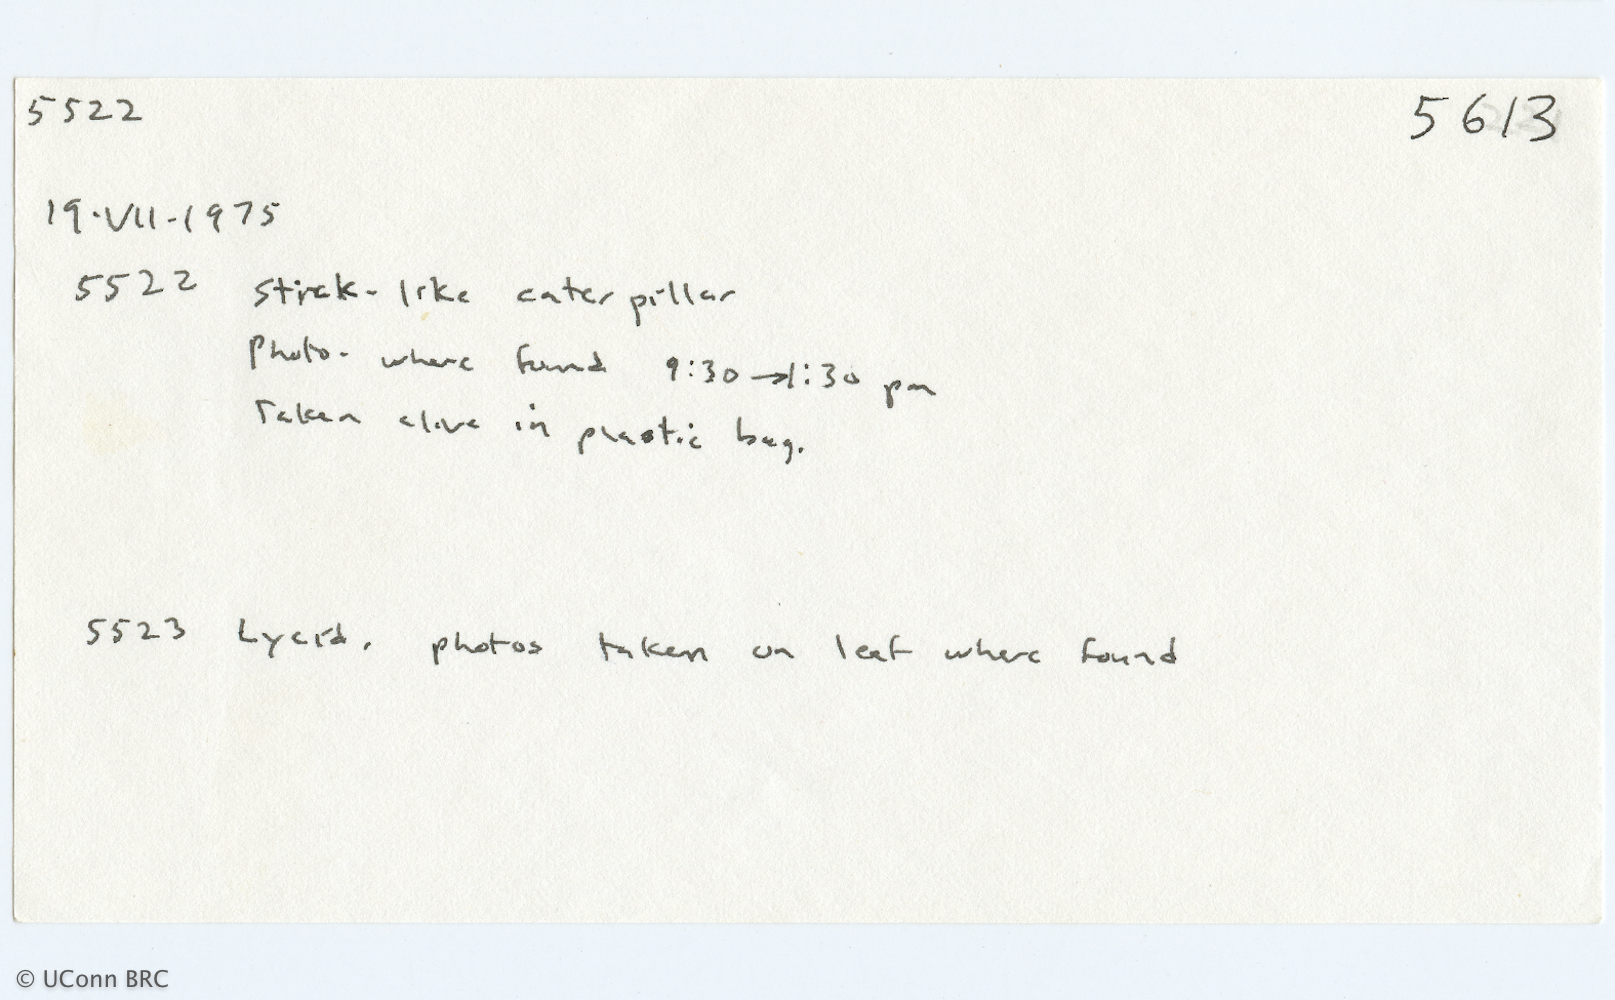 5522
5613
19·VII-1975
5522 Stick-like caterpillar
Photo- where found 9:30→1:30 pm
Taken alive in plastic bag.
5523 Lycid. photos taken on leaf where found
© UConn BRC